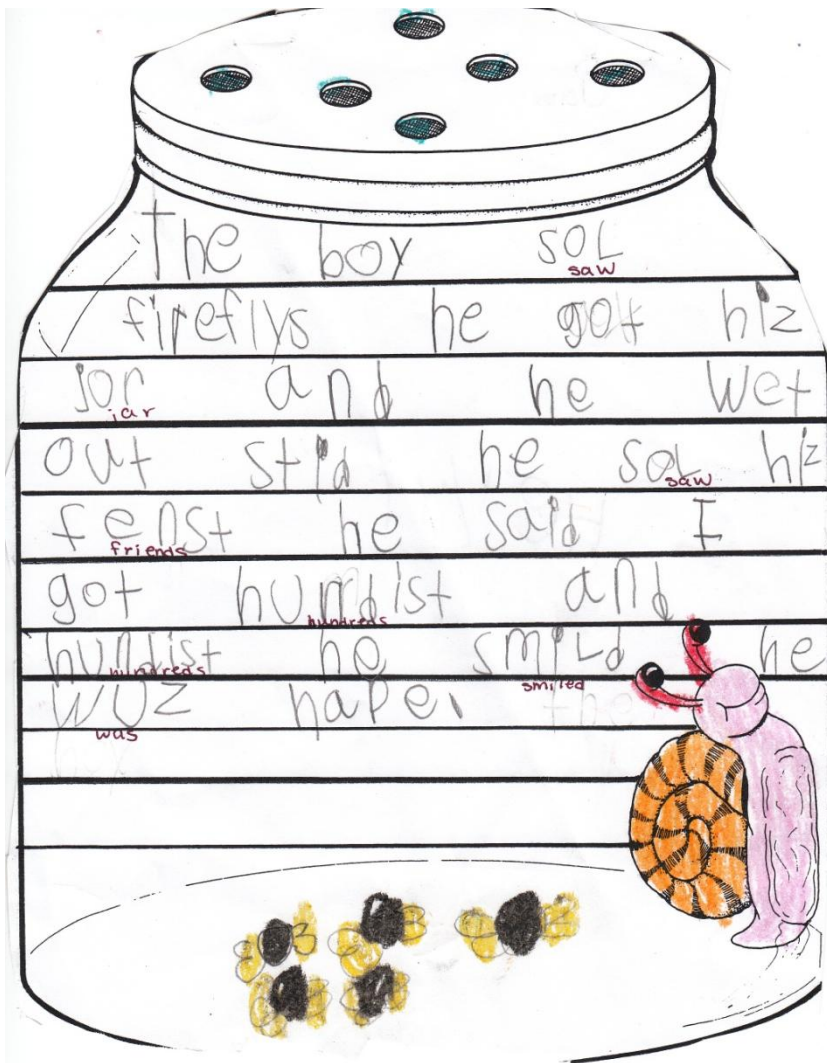 the boy sol
saw
fireflys he got hiz
jor and he wet
jar
out stid he sol hiz
saw
fenst he said I
friends
got hundist and
hundreds
hundist he smild he
hundreds smiled
wuz hape.
was